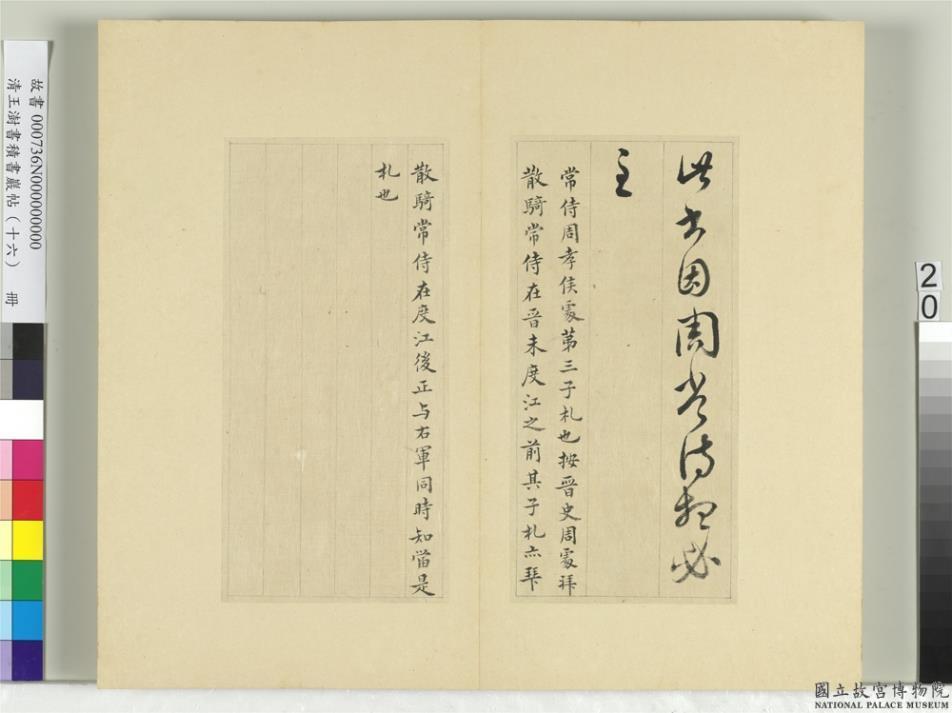 此書因周常侍想必
至
常侍周孝侯處第三子札也按晉史周處拜
散騎常侍在晉未度江之前其子札亦拜
散騎常侍在度江後正与右軍同時知當是
札也
故書 000736N000000000
清王澍書積書巖帖(十六) 冊
20
國立故宮博物院
NATIONAL PALACE MUSEUM